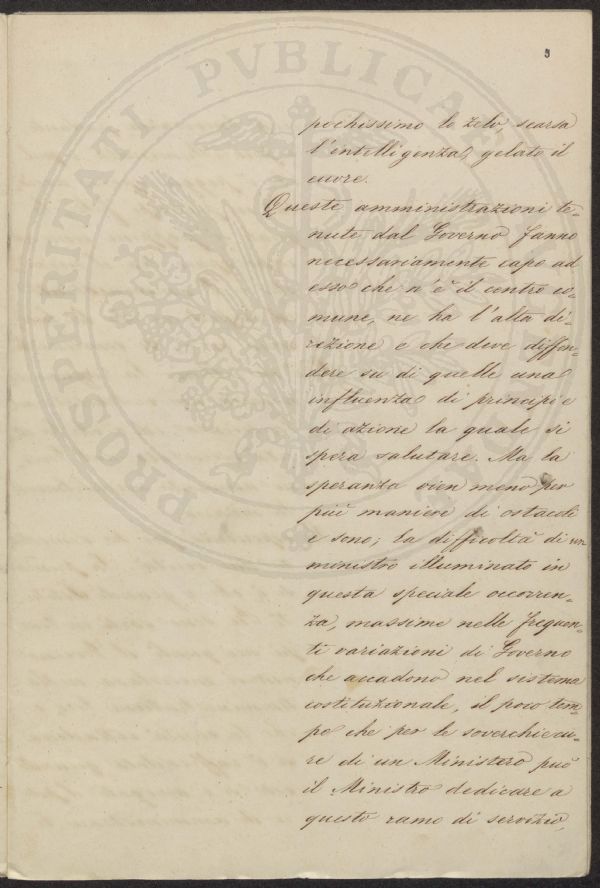 3
PROSPERITATI PVBLICA
pochissimo lo zelo, scarsa
l'intelligenza, gelato il
cuore.
Queste amministrazioni te=
nute dal Governo fanno
necessariamente capo ad
esso che n'è il centro co=
mune, ne ha l'alta di=
rezione e che deve diffon=
dere su di quelle una
influenza di principi e
di azione la quale si
spera salutare. Ma la
speranza vien meno per
più maniere di ostacoli
e sono; la difficoltà di un
ministro illuminato in
questa speciale occorren=
za, massime nelle frequen=
ti variazioni di Governo
che accadono nel sistema
costituzionale, il poco tem=
po che per le soverchie cu=
re di un Ministero può
il Ministro dedicare a
questo ramo di servizio,